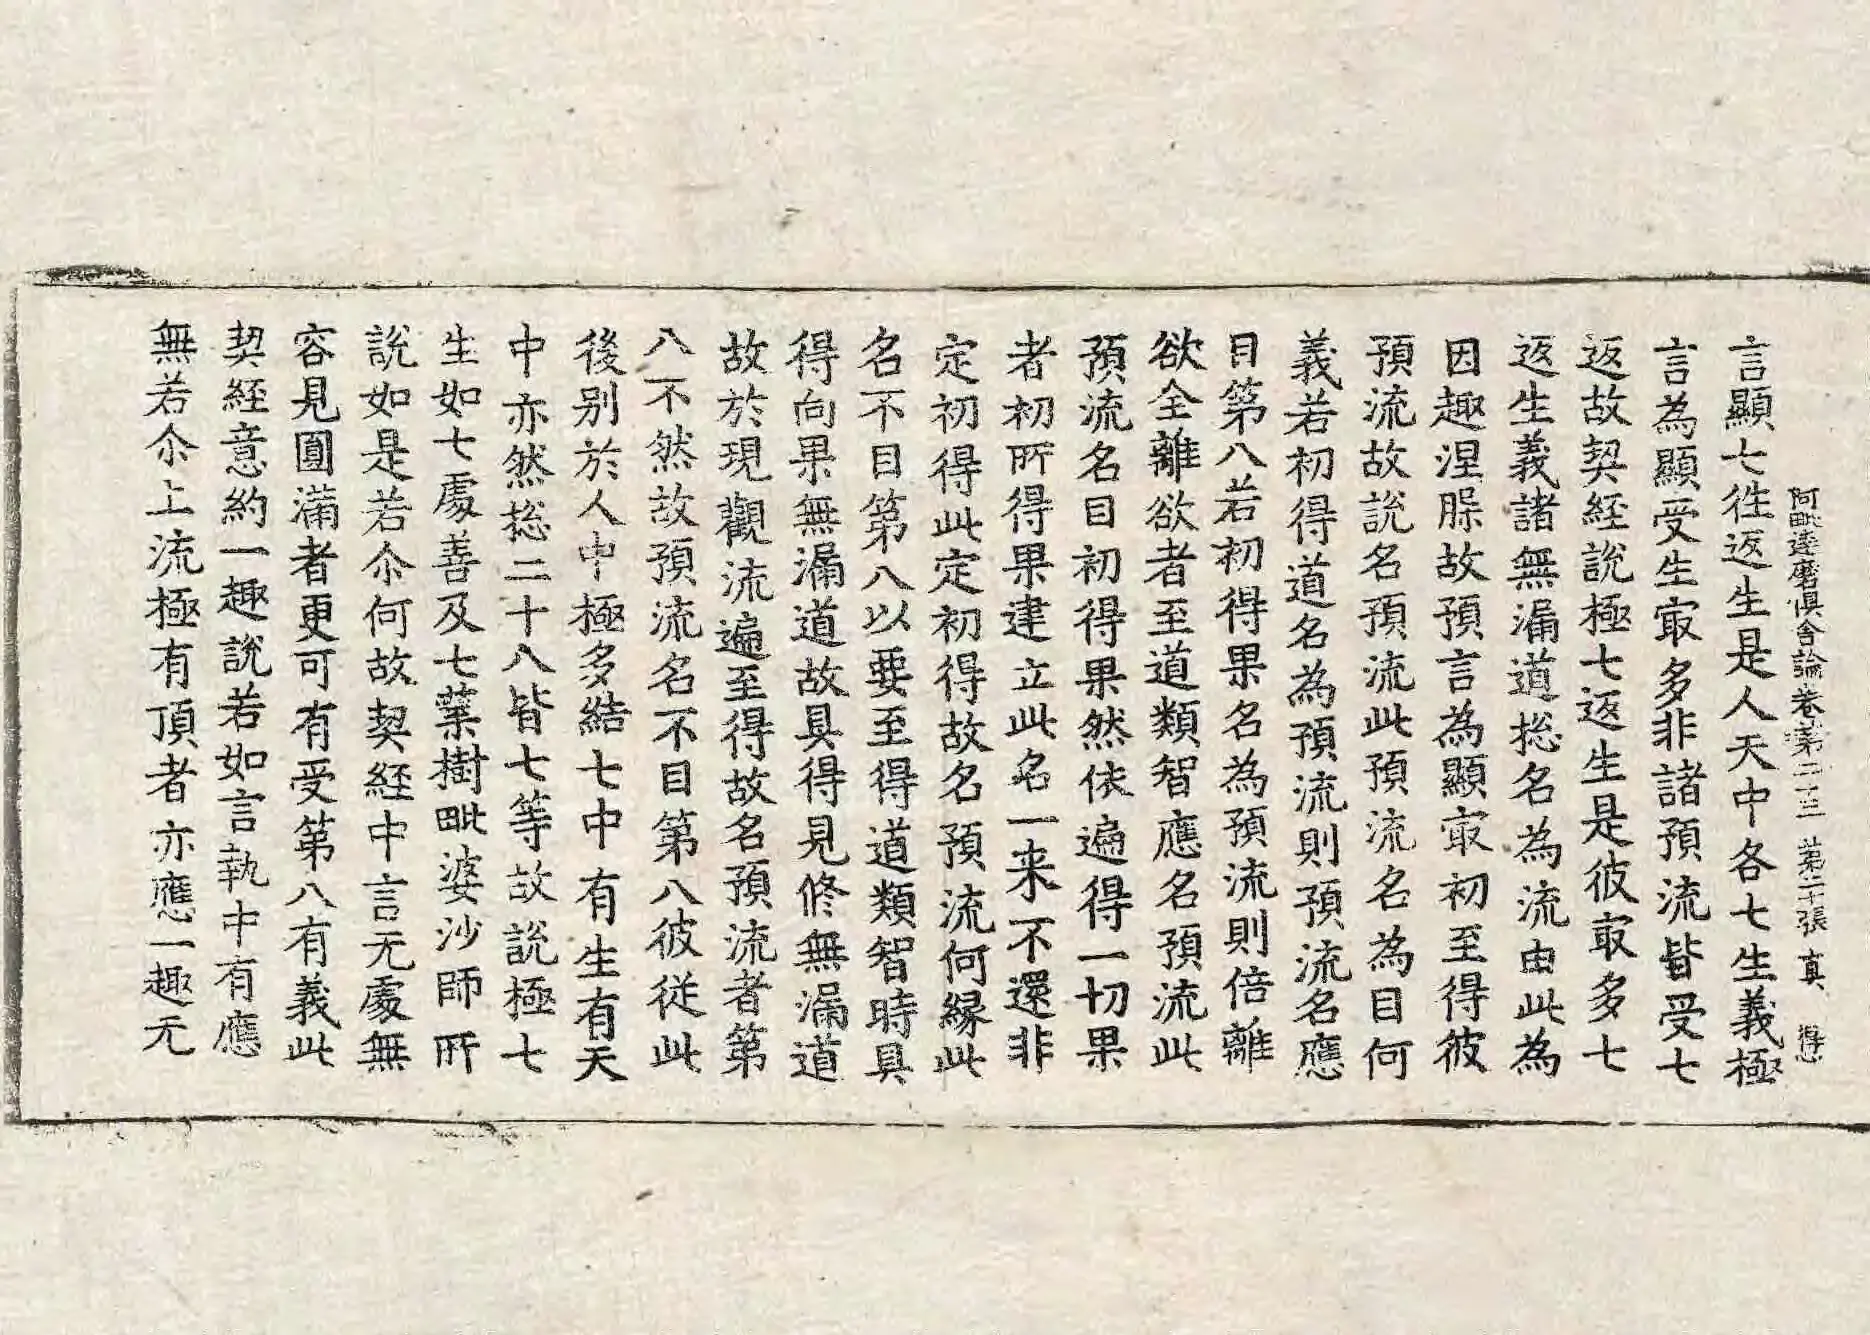 阿毗達磨俱舍論卷第二十三 第二十張 真
言顯七徃返生是人天中各七生義極
言為顯受生㝡多非諸預流皆受七
返故契經說極七返生是彼㝡多七
返生義諸無漏道捴名為流由此為
因趣涅脲故預言為顯㝡初至得彼
預流故說名預流此預流名為目何
義若初得道名為預流則預流名應
目第八若初得果名為預流則倍離
欲全離欲者至道類智應名預流此
預流名目初得果然依遍得一切果
者初所得果建立此名一来不還非
定初得此定初得故名預流何縁此
名不目第八以要至得道類智時具
得向果無漏道故具得見修無漏道
故於現觀流遍至得故名預流者第
八不然故預流名不目第八彼從此
後别於人中極多結七中有生有天
中亦然捴二十八皆七等故說極七
生如七處善及七葉樹毗婆沙師所
說如是若尒何故契經中言无處無
容見圓滿者更可有受第八有義此
契經意約一趣說若如言執中有應
無若尒上流極有頂者亦應一趣无